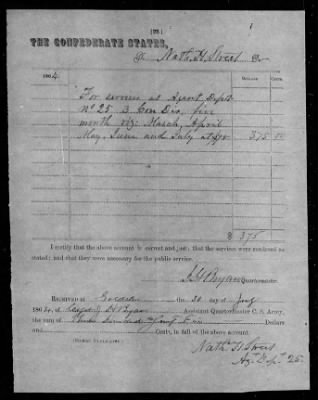 (22)
THE CONFEDERATE STATES,
To Nath. H. Street Dr
1864.
DOLLARS CENTS.
For services as Agent Depot
No 25. 3 Con Dis. five
month viz: March, April
May, June and July at $75 375 00
$ 375
I certify that the above account is correct and just; that the services were rendered as
stated; and that they were necessary for the public service.
Quartermaster.
RECEIVED at the 30 day of July
1864, of Capt J H Bryan Assistant Quartermaster C. S. Army,
the sum of Three hundred Seventy five Dollars
and Cents, in full of the above account.
(SIGNED DUPLICATES.)
Nath H Street
Agt Dept 25